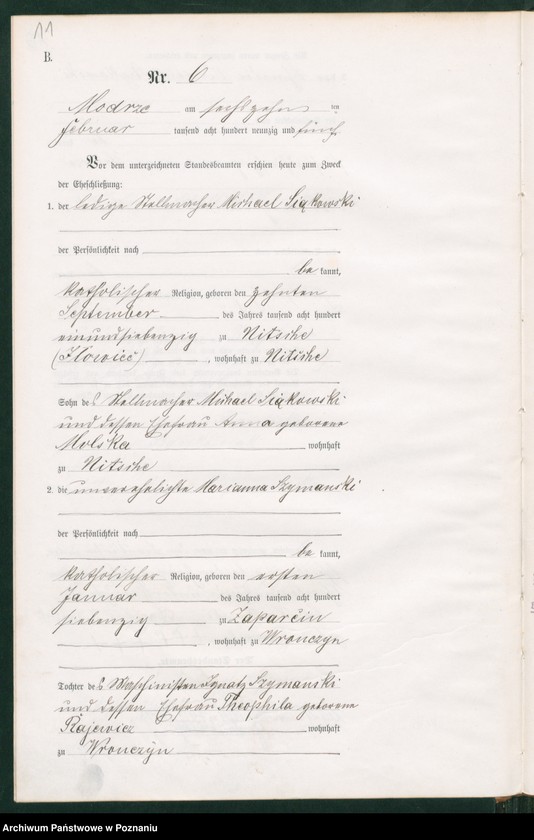 11
B.
Nr. 6
Modrze am sechszehn ten
Februar tausend acht hundert neunzig und fünf.
Vor dem unterzeichneten Standesbeamten erschien heute zum Zweck
der Eheschließung:
1. der ledige Stellmacher Michael Siąkowski
der Persönlichkeit nach
be kannt,
katholischer Religion, geboren den zehnten
September des Jahres tausend acht hundert
einundsiebenzig zu Nitsche
(Iłowiec) , wohnhaft zu Nitsche
Sohn des Stellmacher Michael Siąkowski
und dessen Ehefrau Anna geborene
Molska wohnhaft
zu Nitsche
2. die unverehelichte Marianna Szymanski
der Persönlichkeit nach
be kannt,
katholischer Religion, geboren den ersten
Januar des Jahres tausend acht hundert
siebenzig zu Zaparcin
, wohnhaft zu Wronczyn
Tochter des Maschinisten Ignatz Szymanski
und dessen Ehefrau Theophila geborene
Rajewicz wohnhaft
zu Wronczyn
Archiwum Państwowe w Poznaniu